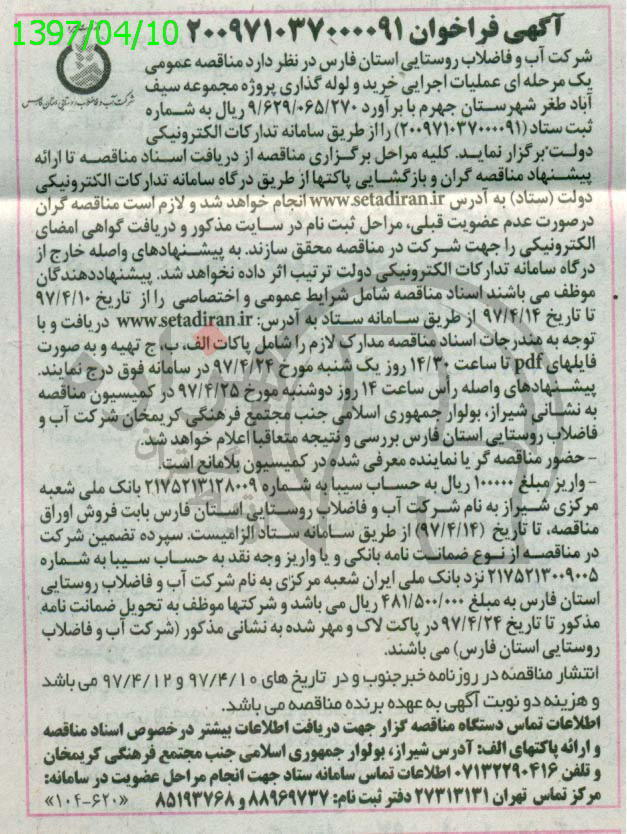 1397/04/10
آگهی فراخوان ۲۰۰۹۷۱۰۳۷۰۰۰۰۹۱
شرکت آب و فاضلاب روستایی استان فارس
شرکت آب و فاضلاب روستایی استان فارس در نظر دارد مناقصه عمومی
یک مرحله ای عملیات اجرایی خرید و لوله گذاری پروژه مجموعه سیف
آباد طغر شهرستان جهرم با برآورد ۹/۶۲۹/۰۶۵/۲۷۰ ریال به شماره
ثبت ستاد (۲۰۰۹۷۱۰۳۷۰۰۰۰۹۱) را از طریق سامانه تدارکات الکترونیکی
دولت برگزار نماید. کلیه مراحل برگزاری مناقصه از دریافت اسناد مناقصه تا ارائه
پیشنهاد مناقصه گران و بازگشایی پاکتها از طریق درگاه سامانه تدارکات الکترونیکی
دولت (ستاد) به آدرس www.setadiran.ir انجام خواهد شد و لازم است مناقصه گران
درصورت عدم عضویت قبلی، مراحل ثبت نام در سایت مذکور و دریافت گواهی امضای
الکترونیکی را جهت شرکت در مناقصه محقق سازند. به پیشنهادهای واصله خارج از
درگاه سامانه تدارکات الکترونیکی دولت ترتیب اثر داده نخواهد شد. پیشنهاددهندگان
موظف می باشند اسناد مناقصه شامل شرایط عمومی و اختصاصی را از تاریخ ۹۷/۴/۱۰
تا تاریخ ۹۷/۴/۱۴ از طریق سامانه ستاد به آدرس: www.setadiran.ir دریافت و با
توجه به مندرجات اسناد مناقصه مدارک لازم را شامل پاکات الف، ب، ج تهیه و به صورت
فایلهای pdf تا ساعت ۱۴/۳۰ روز یک شنبه مورخ ۹۷/۴/۲۴ در سامانه فوق درج نمایند.
پیشنهادهای واصله رأس ساعت ۱۴ روز دوشنبه مورخ ۹۷/۴/۲۵ در کمیسیون مناقصه
به نشانی شیراز، بولوار جمهوری اسلامی جنب مجتمع فرهنگی کریمخان شرکت آب و
فاضلاب روستایی استان فارس بررسی و نتیجه متعاقبا اعلام خواهد شد.
- حضور مناقصه گر یا نماینده معرفی شده در کمیسیون بلامانع است.
- واریز مبلغ ۱۰۰۰۰۰ ریال به حساب سیبا به شماره ۲۱۷۵۲۱۳۱۲۸۰۰۹ بانک ملی شعبه
مرکزی شیراز به نام شرکت آب و فاضلاب روستایی استان فارس بابت فروش اوراق
مناقصه، تا تاریخ (۹۷/۴/۱۴) از طریق سامانه ستاد الزامیست. سپرده تضمین شرکت
در مناقصه از نوع ضمانت نامه بانکی و یا واریز وجه نقد به حساب سیبا به شماره
۲۱۷۵۲۱۳۰۰۹۰۰۵ نزد بانک ملی ایران شعبه مرکزی به نام شرکت آب و فاضلاب روستایی
استان فارس به مبلغ ۴۸۱/۵۰۰/۰۰۰ ریال می باشد و شرکتها موظف به تحویل ضمانت نامه
مذکور تا تاریخ ۹۷/۴/۲۴ در پاکت لاک و مهر شده به نشانی مذکور (شرکت آب و فاضلاب
روستایی استان فارس) می باشند.
انتشار مناقصه در روزنامه خبرجنوب و در تاریخ های ۹۷/۴/۱۰ و ۹۷/۴/۱۲ می باشد
و هزینه دو نوبت آگهی به عهده برنده مناقصه می باشد.
اطلاعات تماس دستگاه مناقصه گزار جهت دریافت اطلاعات بیشتر درخصوص اسناد مناقصه
و ارائه پاکتهای الف: آدرس شیراز، بولوار جمهوری اسلامی جنب مجتمع فرهنگی کریمخان
و تلفن ۰۷۱۳۲۲۹۰۴۱۶ اطلاعات تماس سامانه ستاد جهت انجام مراحل عضویت در سامانه:
مرکز تماس تهران ۲۷۳۱۳۱۳۱ دفتر ثبت نام: ۸۸۹۶۹۷۳۷ و ۸۵۱۹۳۷۶۸ «۱۰۴-۶۲۰»